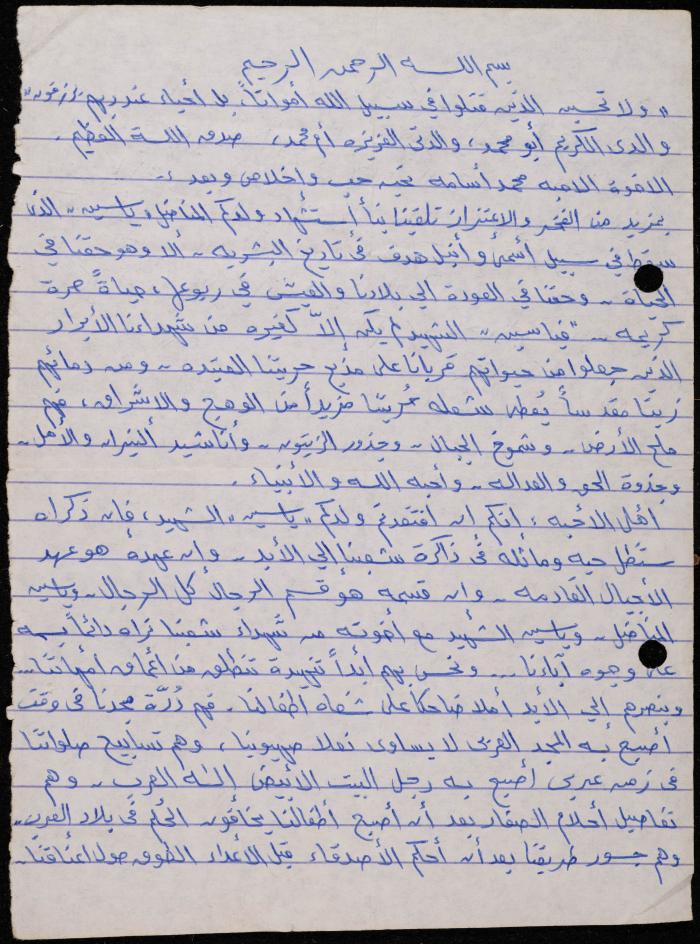 بسم اللـــه الرحمن الرحيم
" ولا تحسبن الذين قتلوا في سبيل الله أمواتاً، بل أحياء عند ربهم يرزقون"
والدي الكريم أبو محمد، والدتي العزيزة أم محمد، صدق اللـــه العظيم.
الاخوة الاحبه محمد أسامه تحيه حب واخلاص وبعد :-
بمزيد من الفخر والاعتزاز تلقينا نبأ استشهاد ولدكم المناضل، ياسين,, الذي
سقط في سبيل أسمى وأنبل هدف في تاريخ البشريه - ألا وهو حقنا في
الحياة - وحقنا في العودة الى بلادنا والعيش في ربوعها، حياةً حرة
كريمه -- "فياسين,, الشهيد لم يكن إلاّ كغيره من شهداءنا الأبرار
الذين جعلوا من حيواتهم قرباناً على مذبح حريتنا العتيده -- ومن دمائهم
زيتاً مقدساً يُعطي شعله حُريتنا مزيداً من الوهج والاشراق، فهم
ملح الأرض - وشموخ الجبال - وجذور الزيتون - وأناشيد النيران والأمل -
وجذوة الحق والعداله - وأحبه اللـــه والأنبياء.
أهل الاحبه : انكم ان افتقدتم ولدكم "ياسين,, الشهيد، فان ذكراه
ستظل حيه وماثله في ذاكرة شعبنا إلى الأبد - وان عهدة هو عهد
الأجيال القادمه - وان قسمه هو قسم الرجال كل الرجال - وياسين
المناضل - وياسين الشهيد مع أخوته من شهداء شعبنا نراه دائماً بسمه
على وجوه آباءنا... ونحس بهم أبداً تنهيدة تنطلق من أعماق أمهاتنا...
ونبصرهم الى الأبد أملا ضاحكاً على شفاه أطفالنا. فهم دُرّة مجدنا في وقت
أصبح به المجد العربي لا يساوى نعلا صهيونيا، وهم تسابيح صلواتنا
في زمن عبري أصبح به رجل البيت الأبيض إلـه العرب - وهم
تفاصيل أحلام الصغار بعد أن أصبح أطفالنا يخافون الحلم في بلاد العرب-
وهم جسور طريقنا بعد أن أحكم الأصدقاء قبل الأعداء الطوق حول أعناقنا-